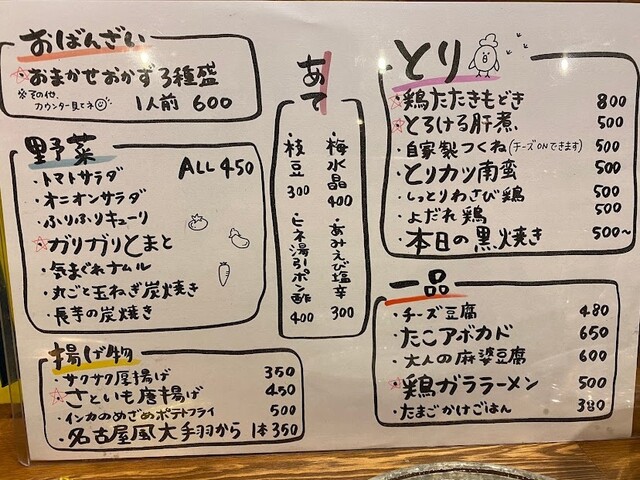 おばんざい
☆おまかせおかず3種盛
※その他、カウンター見てネ 1人前 600
野菜 ALL 450
・トマトサラダ
・オニオンサラダ
・ふりふりキューリ
☆ガリガリとまと
・気まぐれナムル
・丸ごと玉ねぎ炭焼き
・長芋の炭焼き
揚げ物
・サクサク厚揚げ 350
☆さといも唐揚げ 450
・インカのめざめポテトフライ 500
・名古屋風大手羽から 1本350
あて
・梅水晶 400
・あみえび塩辛 300
・枝豆 300
・ヒネ湯引ポン酢 400
とり
☆鶏たたきもどき 800
☆とろける肝煮 500
・自家製つくね(チーズONできます) 500
・とりカツ南蛮 500
・しっとりわさび鶏 500
・よだれ鶏 500
・本日の黒焼き 500~
一品
・チーズ豆腐 480
・たこアボカド 650
・大人の麻婆豆腐 600
☆鶏ガララーメン 500
・たまごかけごはん 380